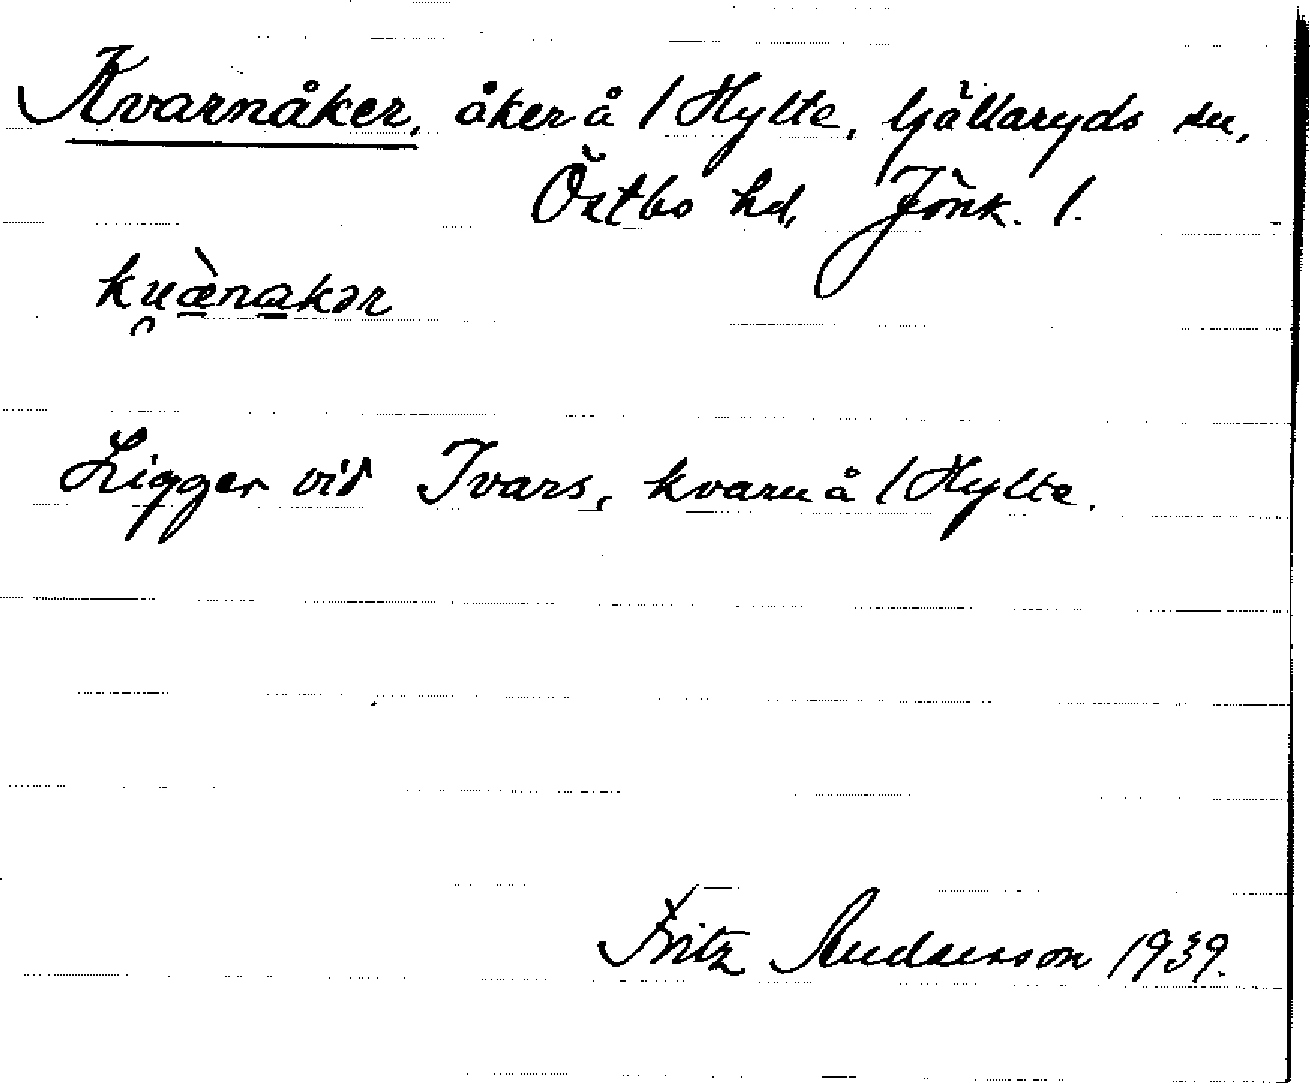 Kvarnåker, åker å / Hylte, Gällaryds sn,
Östbo hd, Jönk. l.
ku̯æ̀nakər
Ligger vid Ivars, kvarn å / Hylte.
Fritz Andersson 1939.